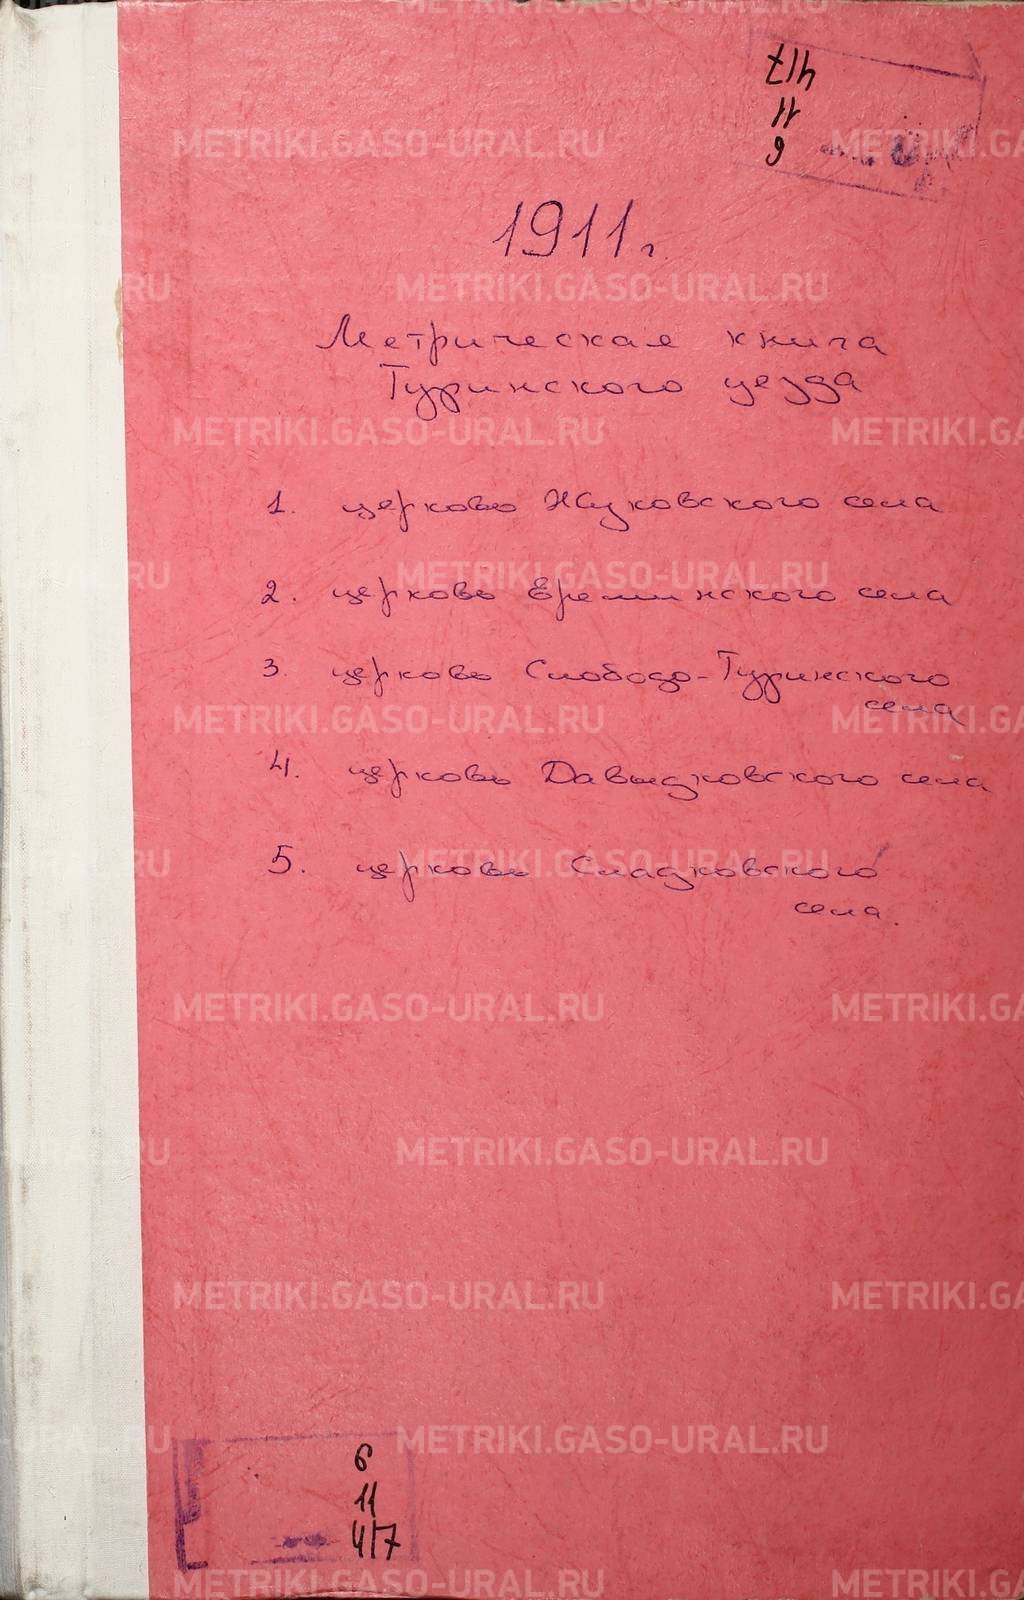 417
11
6
1911 г.
Метрическая книга
Туринского уезда
1. церковь Жуковского села
2. церковь Еремминского села
3. церковь Слободо-Туринского
села
4. церковь Давыдковского села
5. церковь Сладковского
села.
6
11
417
METRIKI.GASO-URAL.RU